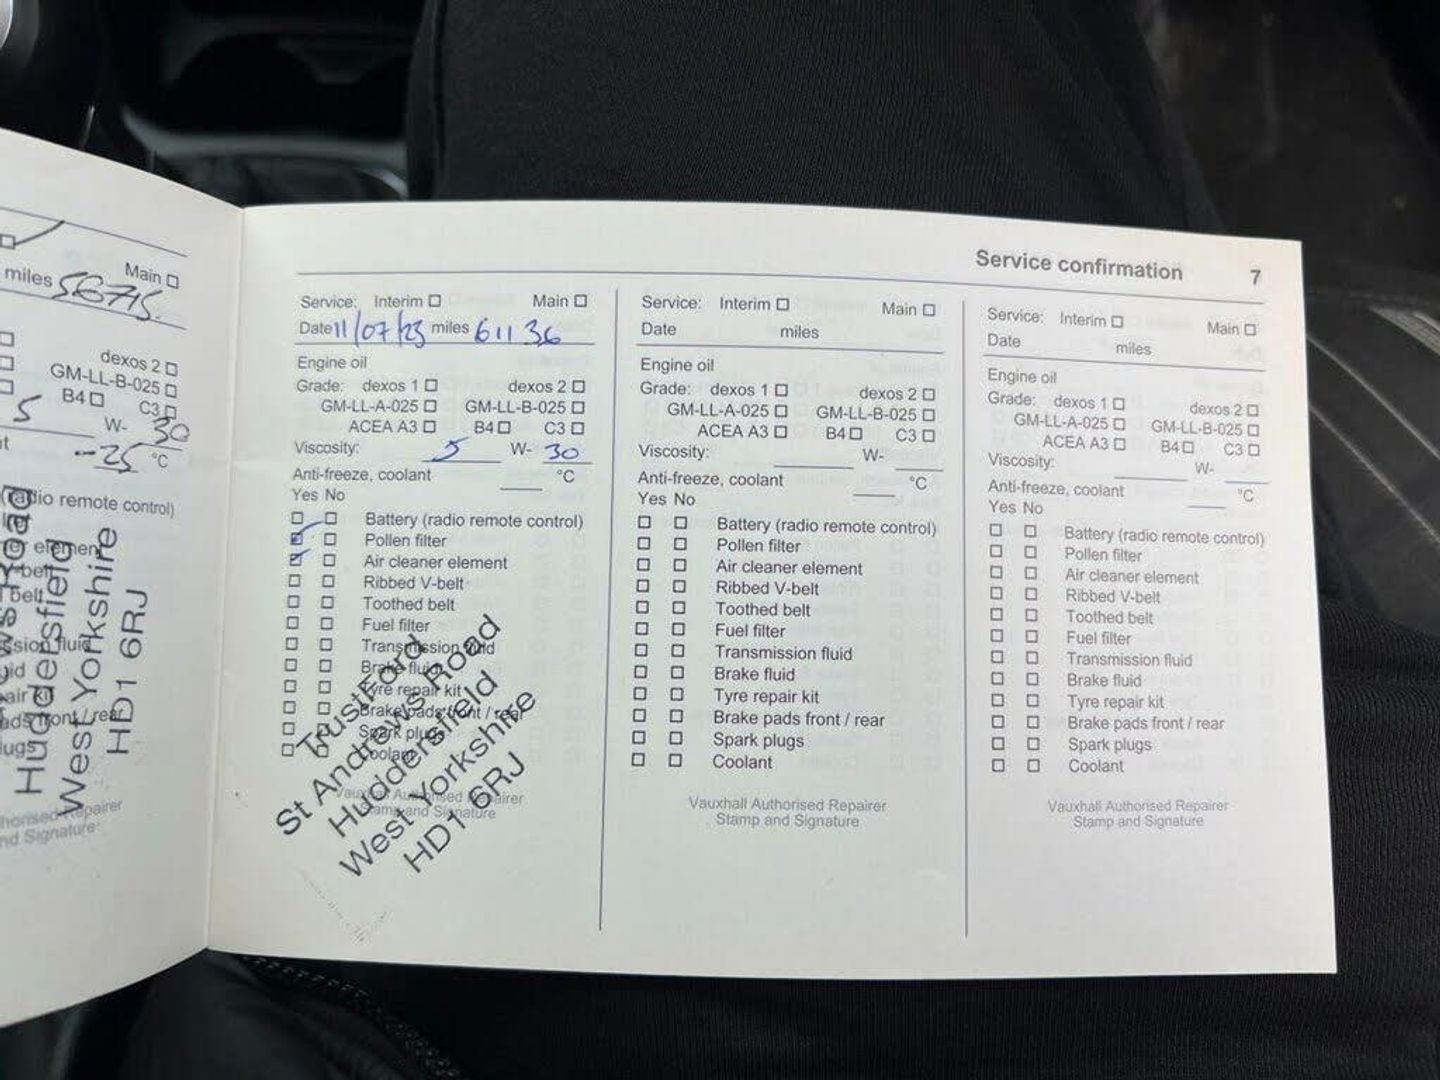 Main
miles 56715.
dexos 2
GM-LL-B-025
B4
C3
5 W- 30
-25 °C
(radio remote control)
Huddersfield
West Yorkshire
HD1 6RJ
Service confirmation 7
Service: Interim Main
Date 11/07/23 miles 61136
Engine oil
Grade: dexos 1 dexos 2
GM-LL-A-025 GM-LL-B-025
ACEA A3 B4 C3
Viscosity: 5 W- 30
Anti-freeze, coolant °C
Yes No
Battery (radio remote control)
Pollen filter
Air cleaner element
Ribbed V-belt
Toothed belt
Fuel filter
Transmission fluid
Brake fluid
Tyre repair kit
Brake pads front / rear
Spark plugs
Coolant
Vauxhall Authorised Repairer
Stamp and Signature
TrustFord
St Andrews Road
Huddersfield
West Yorkshire
HD1 6RJ
Service: Interim Main
Date miles
Engine oil
Grade: dexos 1 dexos 2
GM-LL-A-025 GM-LL-B-025
ACEA A3 B4 C3
Viscosity: W-
Anti-freeze, coolant °C
Yes No
Battery (radio remote control)
Pollen filter
Air cleaner element
Ribbed V-belt
Toothed belt
Fuel filter
Transmission fluid
Brake fluid
Tyre repair kit
Brake pads front / rear
Spark plugs
Coolant
Vauxhall Authorised Repairer
Stamp and Signature
Service: Interim Main
Date miles
Engine oil
Grade: dexos 1 dexos 2
GM-LL-A-025 GM-LL-B-025
ACEA A3 B4 C3
Viscosity: W-
Anti-freeze, coolant °C
Yes No
Battery (radio remote control)
Pollen filter
Air cleaner element
Ribbed V-belt
Toothed belt
Fuel filter
Transmission fluid
Brake fluid
Tyre repair kit
Brake pads front / rear
Spark plugs
Coolant
Vauxhall Authorised Repairer
Stamp and Signature